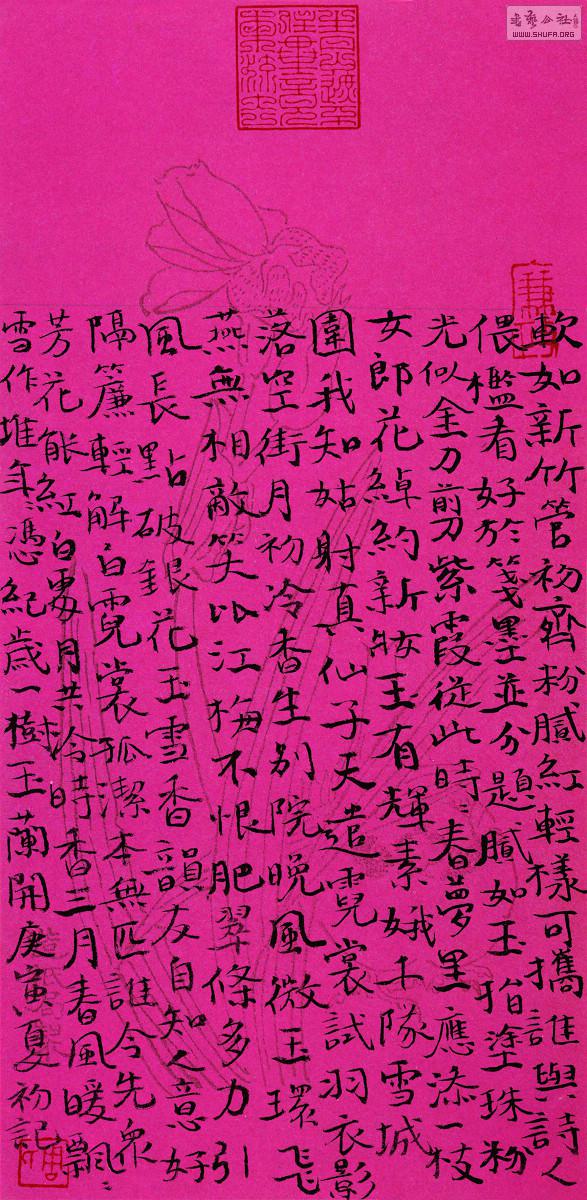 書藝公社
WWW.SHUFA.ORG
軟如新竹管初齊粉膩紅輕樣可攜誰與詩人
偎檻看好於箋墨並分題膩如玉指塗珠粉
光似金刀剪紫霞從此時時春夢里應添一枝
女郎花綽約新妝玉有輝素娥千隊雪城
圍我知姑射真仙子天遣霓裳試羽衣影
落空街月初冷香生別院晚風微玉環飛
燕無相敵笑比江梅不恨肥翠條多力引
風長點破銀花玉雪香韻友自知人意好
隔簾輕解白霓裳孤潔本無匹誰令先眾
芳花能紅白月共冷時香三月春風暖飄飄
雪作堆年年憑紀歲一樹玉蘭開庚寅夏初記